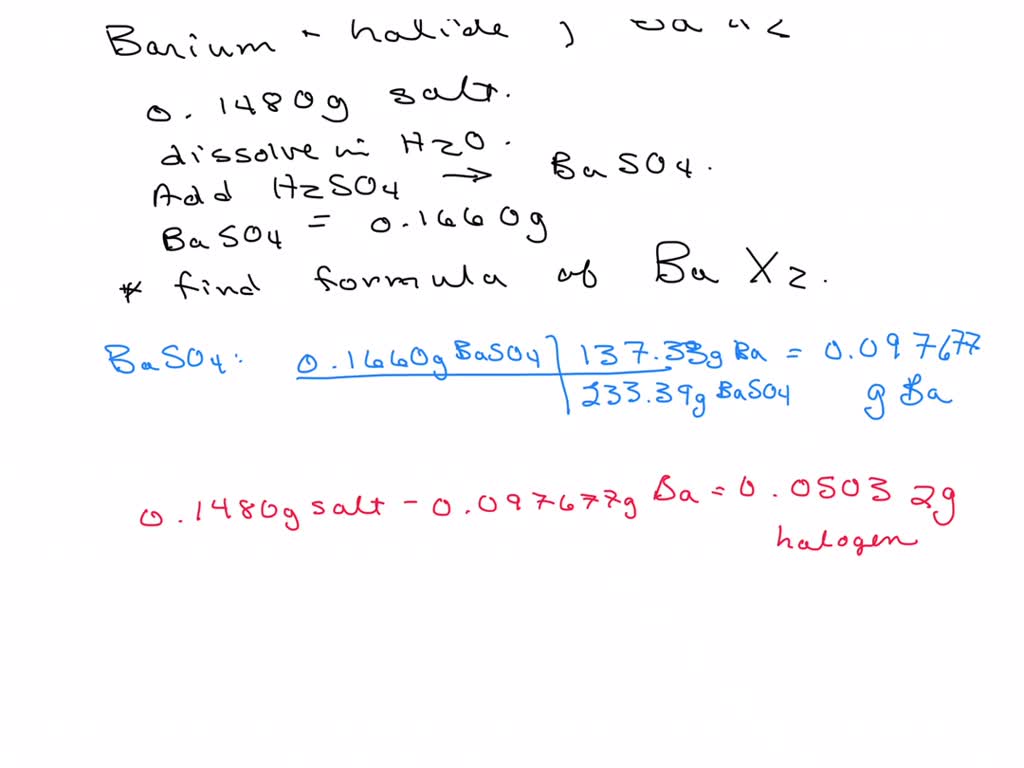 Barium - halide,
0.1480g salt.
dissolve in H2O.
Add H2SO4 → BaSO4.
BaSO4 = 0.1660g
* find formula of BaX2.
BaSO4: 0.1660g BaSO4 | 137.33g Ba = 0.097677
233.39g BaSO4 g Ba
0.1480g salt - 0.097677g Ba = 0.05032g
halogen